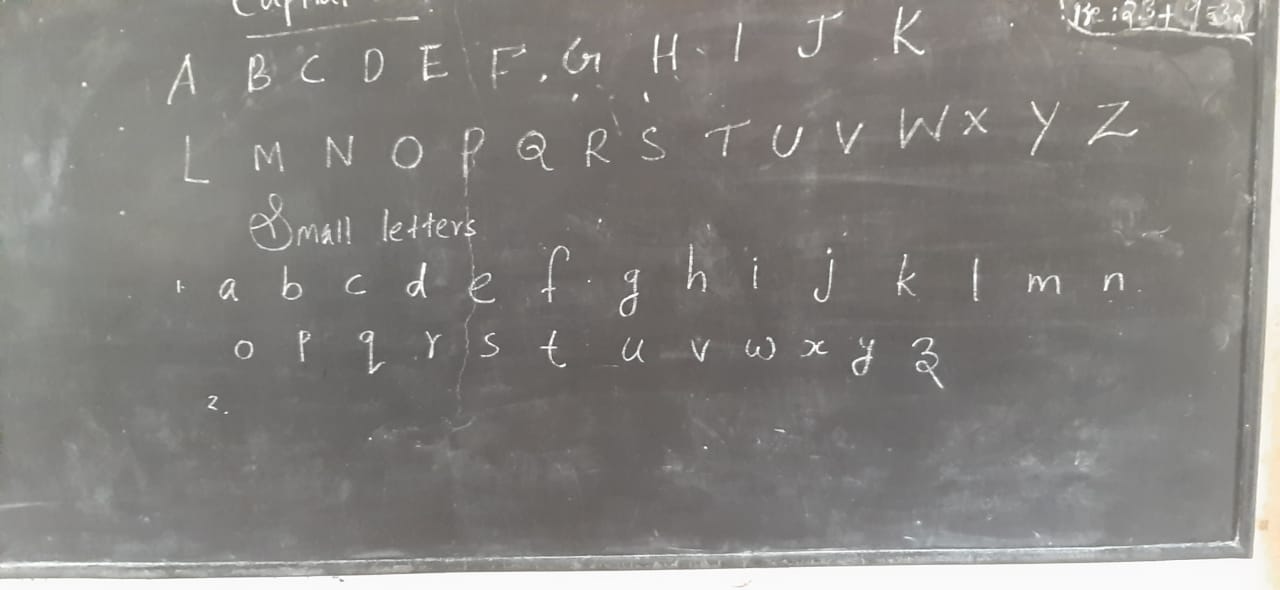 Capital
23 + 9 = 32
A B C D E F G H I J K
L M N O P Q R S T U V W X Y Z
Small letters
a b c d e f g h i j k l m n
o p q r s t u v w x y z
2.